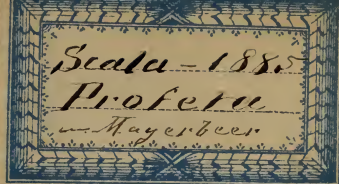 Scala - 1885
Profeta
Mayerbeer